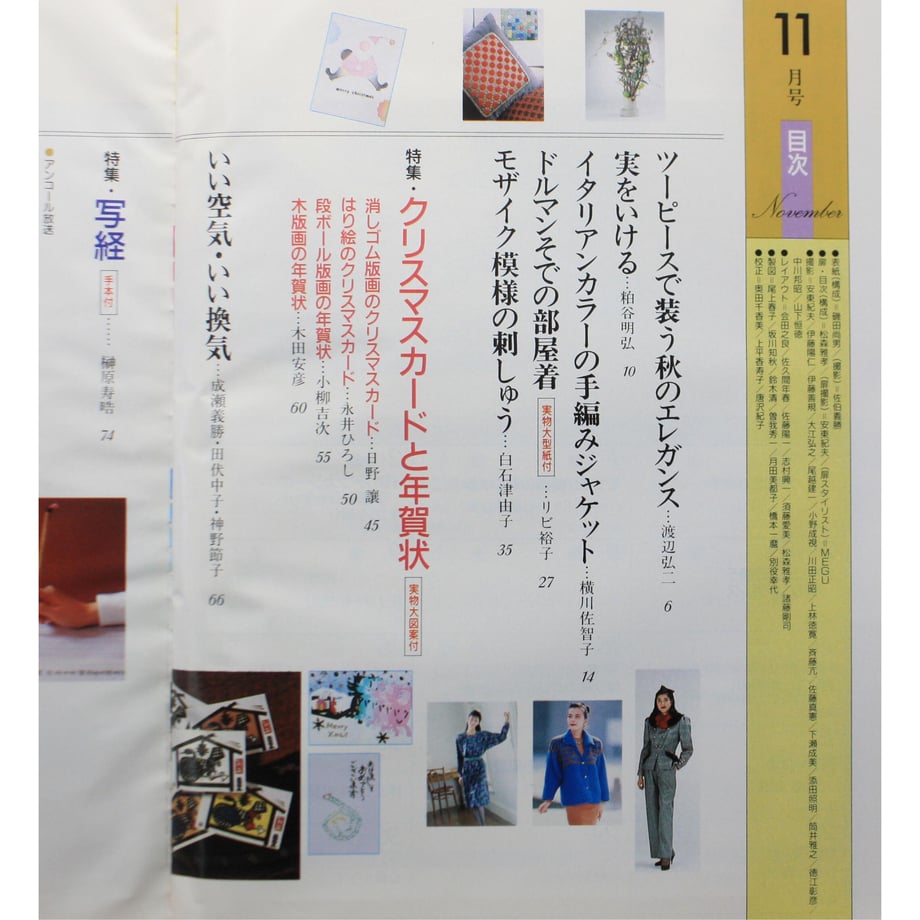 11
月号
目次
November
●表紙(構成)=磯田尚男/(撮影)=佐伯義勝
●扉・目次(構成)=松森雅孝/(扉撮影)=安東紀夫/(扉スタイリスト)=MEGU
●撮影=安東紀夫/伊藤陽仁/伊藤善規/大江弘之/尾越建一/小野成視/川田正昭/上林徳寛/斉藤亢/佐藤真憲/下瀬成美/添田照明/筒井雅之/徳江彰彦/
中川邦昭/山下恒徳
●レイアウト=会田之良/佐久間年春/佐藤陽一/志村興一/須藤愛美/松森雅孝/諸藤剛司
●製図=尾上春子/坂川知秋/鈴木清/曽我秀一/月田美都子/橋本一麿/別役幸代
●校正=奥田千香美/上平香寿子/唐沢紀子
ツーピースで装う秋のエレガンス…渡辺弘二 6
実をいける…粕谷明弘 10
イタリアンカラーの手編みジャケット…横川佐智子 14
ドルマンそでの部屋着 実物大型紙付 …リビ裕子 27
モザイク模様の刺しゅう…白石津由子 35
特集・クリスマスカードと年賀状 実物大図案付
消しゴム版画のクリスマスカード…日野 譲 45
はり絵のクリスマスカード…永井ひろし 50
段ボール版画の年賀状…小柳吉次 55
木版画の年賀状…木田安彦 60
いい空気・いい換気…成瀬義勝・田伏中子・神野節子 66
特集・写経 手本付 ……榊原寿晧 74
●アンコール放送
merry christmas
Merry
Xmas